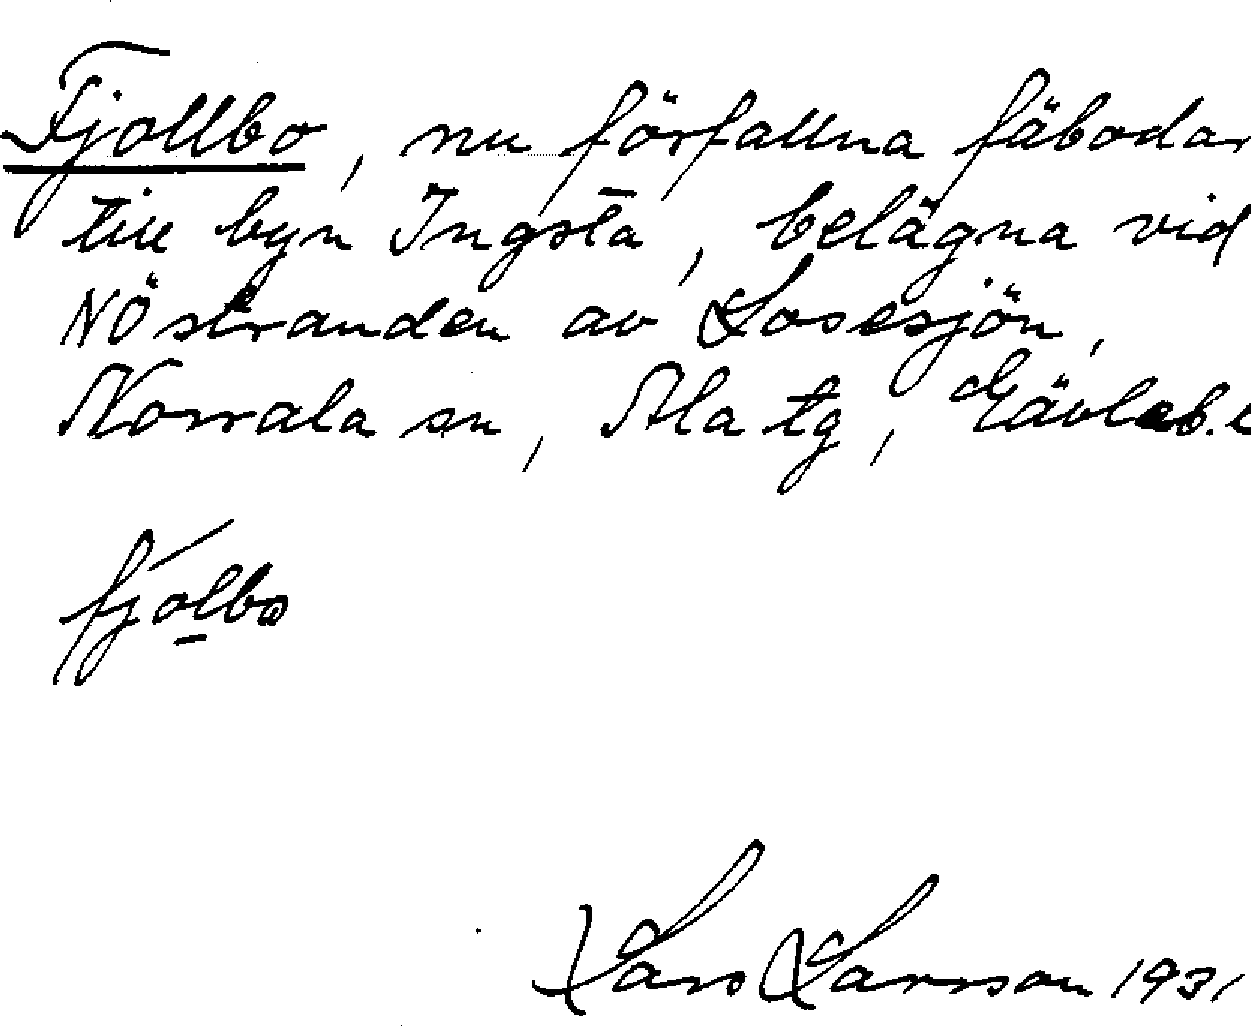 Fjollbo, nu förfallna fäbodar
till byn Ingsta, belägna vid
NÖ stranden av Losesjön,
Norrala sn, Ala tg, Gävleb. l
fjolbo
Lars Larsson 1931